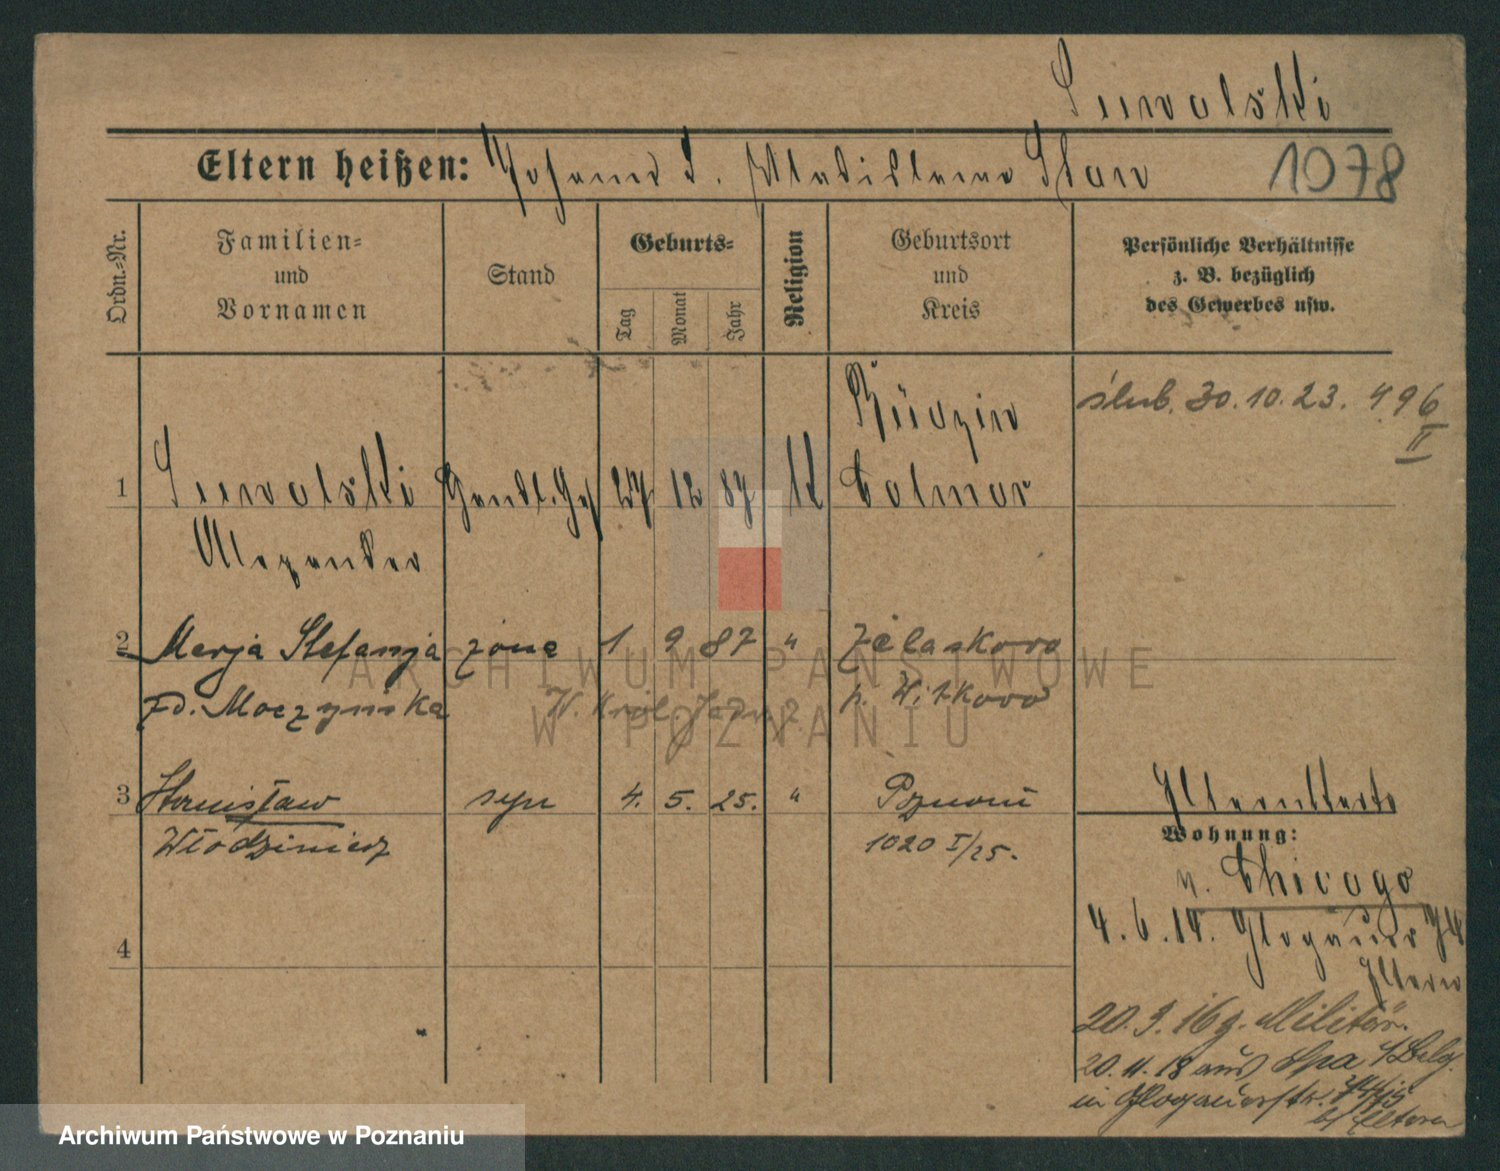 Suwalski
Eltern heißen: Johann S. Wladislawa Stan 1078
Ordn.-Nr.
Familien-
und
Vornamen
Stand
Geburts-
Tag
Monat
Jahr
Religion
Geburtsort
und
Kreis
Persönliche Verhältnisse
z. B. bezüglich
des Gewerbes usw.
ślub. 30.10.23. 496
II
1 Suwalski Handl. Geh 27 12 87 K Colmar
Alexander
2 Marja Stefanja żona 1 9 87 " Żelaskowo
zd. Moczyńska W. Król. Jadw. 2. p. Witkowo
3 Stanisław syn 4. 5. 25. " Poznań
Włodzimierz 1020 I/25.
4
Wohnung:
n. Chicago
4.6.14. Glogauer 74
Eltern
20.9.16 g. Militär.
20.11.18 aus Spa / Belg.
in Glogauerstr. 74/75
b/ Eltern
ARCHIWUM PAŃSTWOWE
W POZNANIU
Archiwum Państwowe w Poznaniu